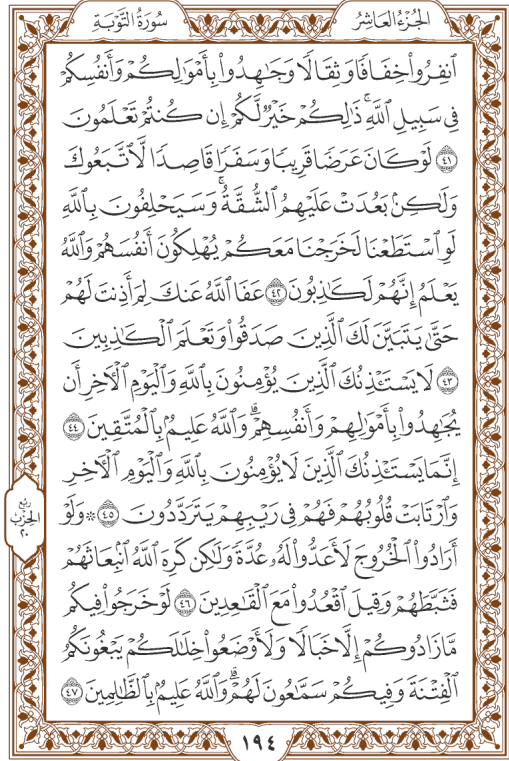 الجُزْءُ العَاشِرُ
سُورَةُ التَّوْبَةِ
ٱنفِرُوا۟ خِفَافًا وَثِقَالًا وَجَـٰهِدُوا۟ بِأَمْوَٰلِكُمْ وَأَنفُسِكُمْ
فِى سَبِيلِ ٱللَّهِ ۚ ذَٰلِكُمْ خَيْرٌ لَّكُمْ إِن كُنتُمْ تَعْلَمُونَ
٤١ لَوْ كَانَ عَرَضًا قَرِيبًا وَسَفَرًا قَاصِدًا لَّٱتَّبَعُوكَ
وَلَـٰكِنۢ بَعُدَتْ عَلَيْهِمُ ٱلشُّقَّةُ ۚ وَسَيَحْلِفُونَ بِٱللَّهِ
لَوِ ٱسْتَطَعْنَا لَخَرَجْنَا مَعَكُمْ يُهْلِكُونَ أَنفُسَهُمْ وَٱللَّهُ
يَعْلَمُ إِنَّهُمْ لَكَـٰذِبُونَ ٤٢ عَفَا ٱللَّهُ عَنكَ لِمَ أَذِنتَ لَهُمْ
حَتَّىٰ يَتَبَيَّنَ لَكَ ٱلَّذِينَ صَدَقُوا۟ وَتَعْلَمَ ٱلْكَـٰذِبِينَ
٤٣ لَا يَسْتَـْٔذِنُكَ ٱلَّذِينَ يُؤْمِنُونَ بِٱللَّهِ وَٱلْيَوْمِ ٱلْـَٔاخِرِ أَن
يُجَـٰهِدُوا۟ بِأَمْوَٰلِهِمْ وَأَنفُسِهِمْ ۗ وَٱللَّهُ عَلِيمٌۢ بِٱلْمُتَّقِينَ ٤٤
إِنَّمَا يَسْتَـْٔذِنُكَ ٱلَّذِينَ لَا يُؤْمِنُونَ بِٱللَّهِ وَٱلْيَوْمِ ٱلْـَٔاخِرِ
وَٱرْتَابَتْ قُلُوبُهُمْ فَهُمْ فِى رَيْبِهِمْ يَتَرَدَّدُونَ ٤٥ ۞ وَلَوْ
رُبْع
الحِزْبِ
٢٠
أَرَادُوا۟ ٱلْخُرُوجَ لَأَعَدُّوا۟ لَهُۥ عُدَّةً وَلَـٰكِن كَرِهَ ٱللَّهُ ٱنۢبِعَاثَهُمْ
فَثَبَّطَهُمْ وَقِيلَ ٱقْعُدُوا۟ مَعَ ٱلْقَـٰعِدِينَ ٤٦ لَوْ خَرَجُوا۟ فِيكُم
مَّا زَادُوكُمْ إِلَّا خَبَالًا وَلَأَوْضَعُوا۟ خِلَـٰلَكُمْ يَبْغُونَكُمُ
ٱلْفِتْنَةَ وَفِيكُمْ سَمَّـٰعُونَ لَهُمْ ۗ وَٱللَّهُ عَلِيمٌۢ بِٱلظَّـٰلِمِينَ ٤٧
١٩٤